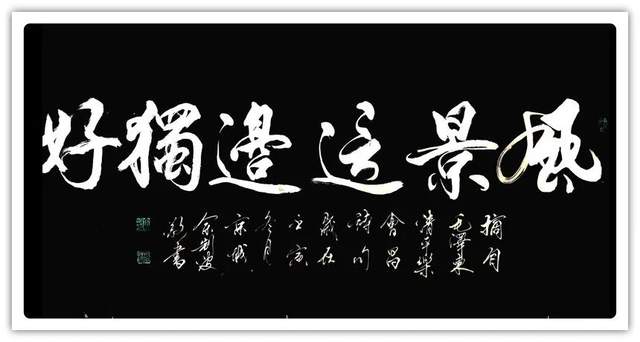 風景這邊獨好
摘自
毛澤東
清平樂
會昌
詩句
歲在
壬寅
冬月
京城
書